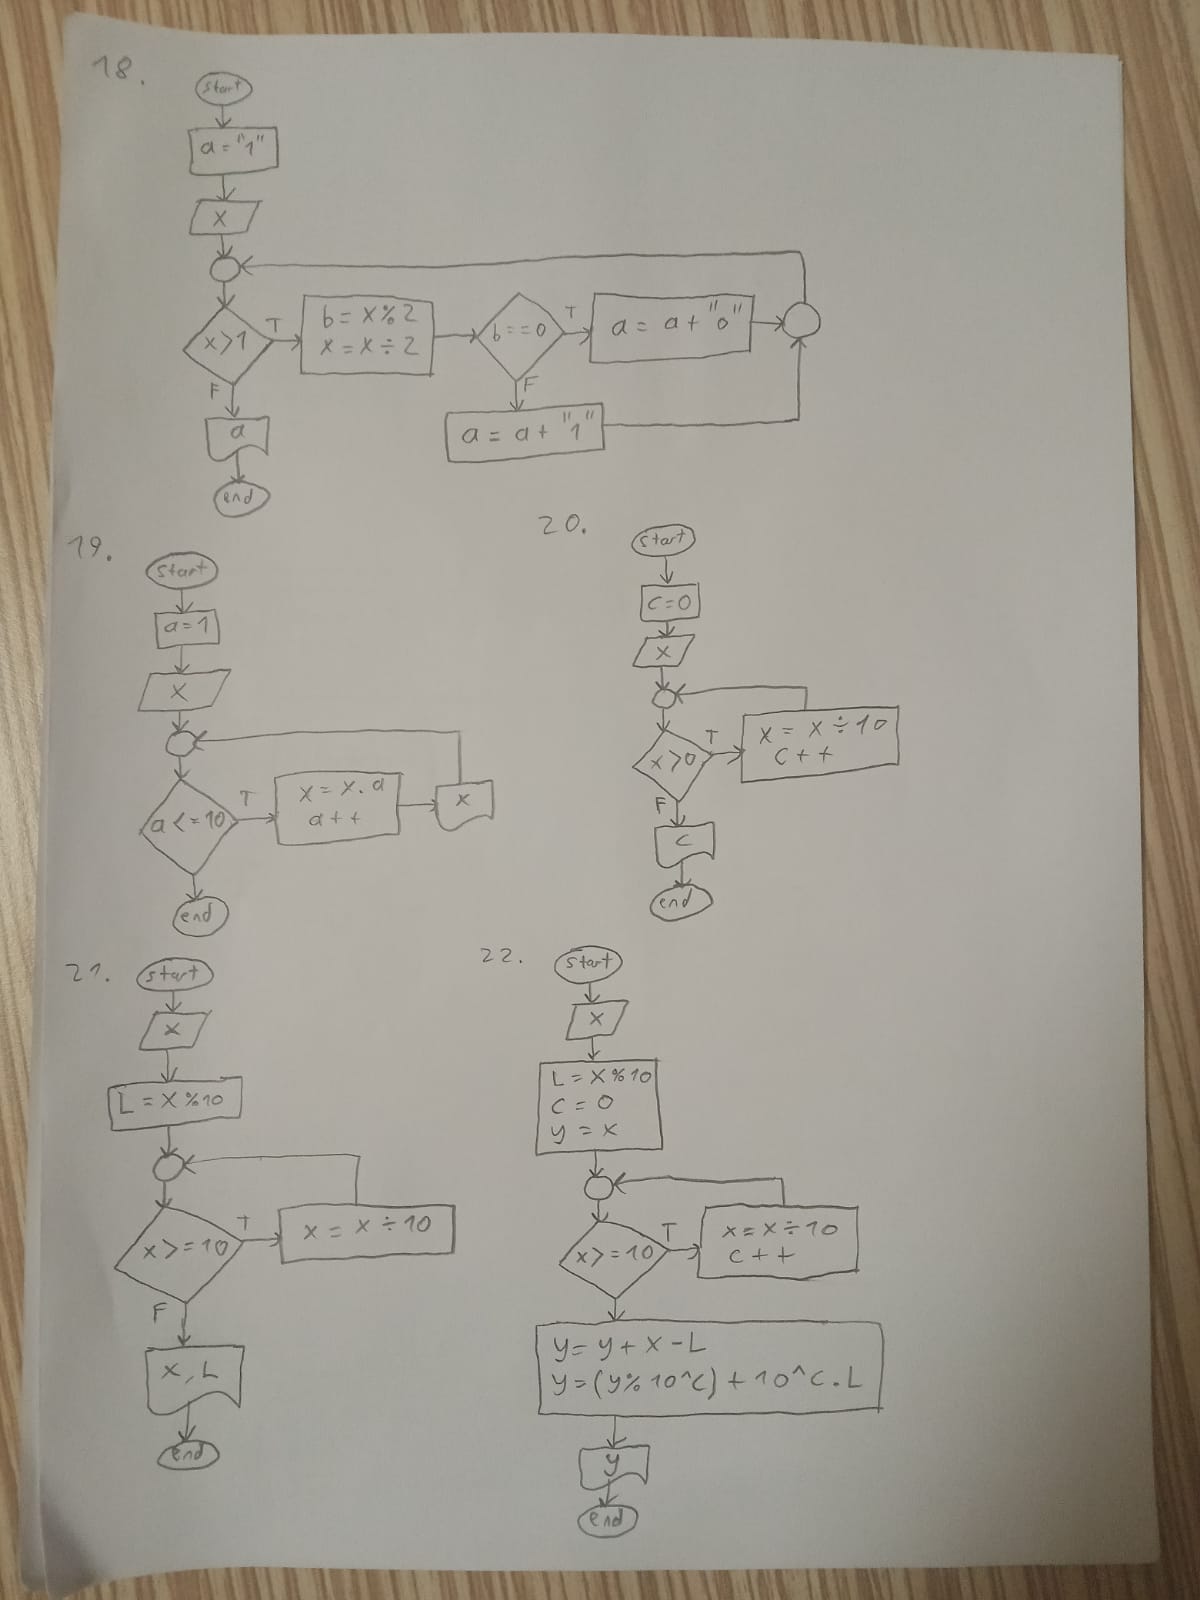 18.
start
a = "1"
x
x>1
T
b = x%2
x = x÷2
b==0
T
a = a+ "0"
F
a = a+ "1"
F
a
end
19.
start
a=1
x
a<=10
T
x = x.a
a++
x
end
20.
start
c=0
x
x>0
T
x = x÷10
c++
F
c
end
21.
start
x
L = x%10
x>=10
T
x = x÷10
F
x, L
end
22.
start
x
L = x%10
c = 0
y = x
x>=10
T
x=x÷10
c++
y= y+x-L
y=(y%10^c)+10^c.L
y
end